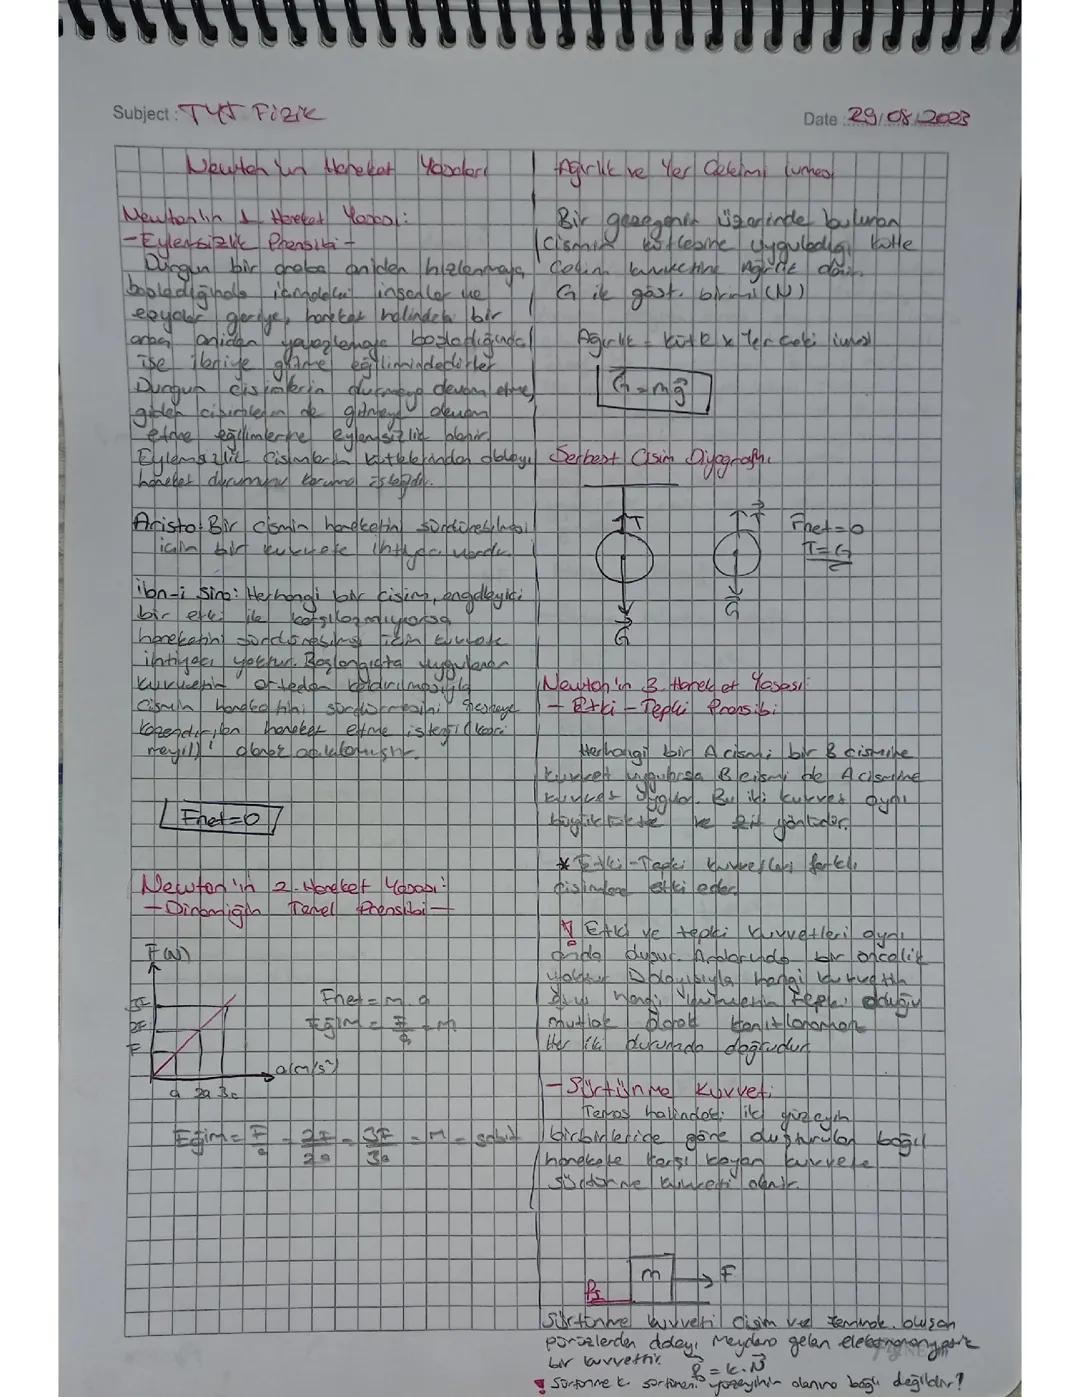 Subject: TYT Fizik
Date 29/08/2023
Newton'un Hareket Yasaları
Newton'un 1. Hareket Yasası:
- Eylemsizlik Prensibi -
Durgun bir araba aniden hızlanmaya
başladığında içindeki insanlar ve
eşyalar geriye, hareket halindeki bir
araba aniden yavaşlamaya başladığında
ise ileriye gitme eğilimindedirler
Durgun cisimlerin durmaya devam etme,
giden cisimlerin de gitmeye devam
etme eğilimlerine eylemsizlik denir.
Eylemsizlik cisimlerin kütlelerinden dolayı
hareket durumunu koruma isteğidir.
Aristo: Bir cismin hareketini sürdürebilmesi
için bir kuvvete ihtiyacı vardır.
ibn-i Sina: Herhangi bir cisim, engelleyici
bir etki ile karşılaşmıyorsa
hareketini sürdürebilmesi için kuvvete
ihtiyacı yoktur. Başlangıçta uygulanan
kuvvetin ortadan kaldırılmasıyla
cismin hareketini sürdürmesini
hareket etme isteği
meyil) olarak açıklamıştır.
Fnet=0
Newton'in 2. Hareket Yasası:
- Dinamiğin Temel Prensibi -
F(N)
3F
2F
F
a 2a 3a
a(m/s²)
Fnet = m.a
Eğim = F/a = m
Eğim = F/a = 2F/2a = 3F/3a = m = sabit
Ağırlık ve Yer Çekimi ivmesi
Bir gezegenin üzerinde bulunan
cismin kütlesine uyguladığı kütle
çekim kuvvetine ağırlık denir.
G ile göst. birimi (N)
Ağırlık = kütle x Yer çeki ivmesi
G = mg
Serbest Cisim Diyagramı
T
G
T
G
Fnet=0
T=G
Newton'in 3. Hareket Yasası:
- Etki - Tepki Prensibi
Herhangi bir A cismi bir B cismine
kuvvet uygularsa B cismi de A cismine
kuvvet uygular. Bu iki kuvvet aynı
büyüklükte ve zıt yönlüdür.
* Etki - Tepki kuvvetleri farklı
cisimlere etki eder
! Etki ve tepki kuvvetleri aynı
anda oluşur. Aralarında bir öncelik
yoktur Dolayısıyla hangi kuvvetin
etki hangi kuvvetin tepki olduğu
mutlak olarak kanıtlanamaz
Her iki durumda doğrudur
- Sürtünme Kuvveti
Temas halindeki iki yüzeyin
birbirlerine göre oluşturulan bağıl
harekete karşı koyan kuvvete
sürtünme kuvveti denir.
m
F
Fs
Sürtünme kuvveti cisim ve zeminde bulunan
pürüzlerden dolayı meydana gelen elektromanyetik
bir kuvvettir. = k.N
! Sürtünme k. sürtünen yüzeyinin alanına bağlı değildir!